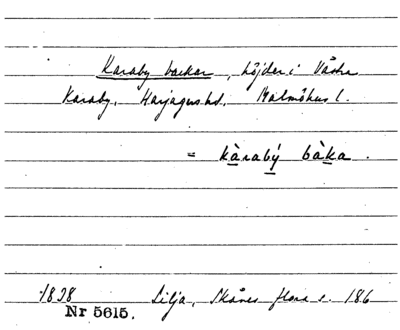 Karaby backar, höjder i Västra
Karaby, Harjagers hd. Malmöhus l.
= kàrabý bàka.
1838 Lilja, Skånes flora s. 186
Nr 5615.